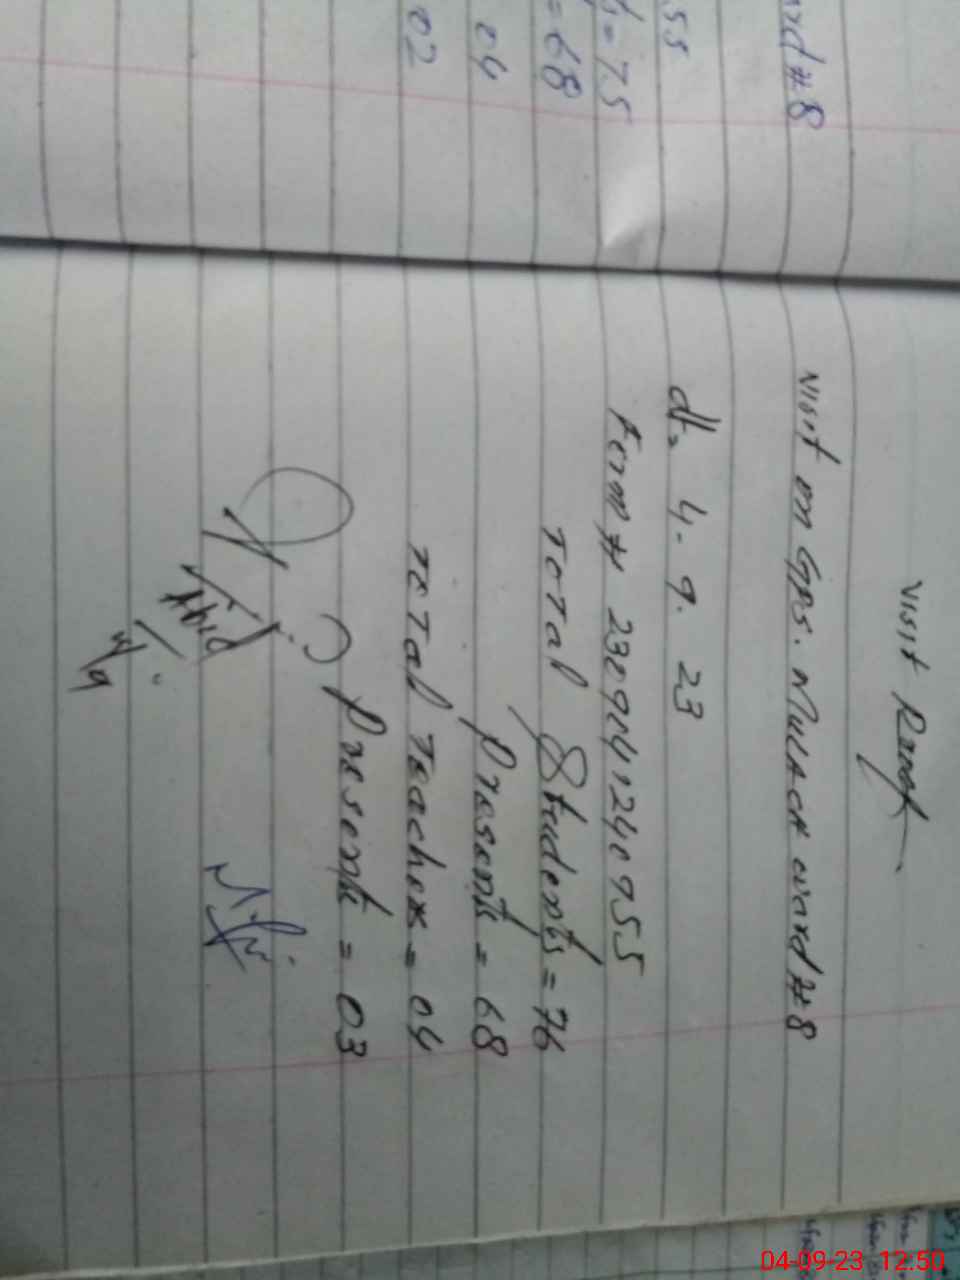 ard # 8
55
s = 75
= 68
04
02
Visit
Visit on GPS. Mullach ward # 8
dt. 4. 9. 23
Total Students = 76
Presents = 68
Total Teachers = 04
Presents = 03
Abid
4/9
04-09-23 12:50